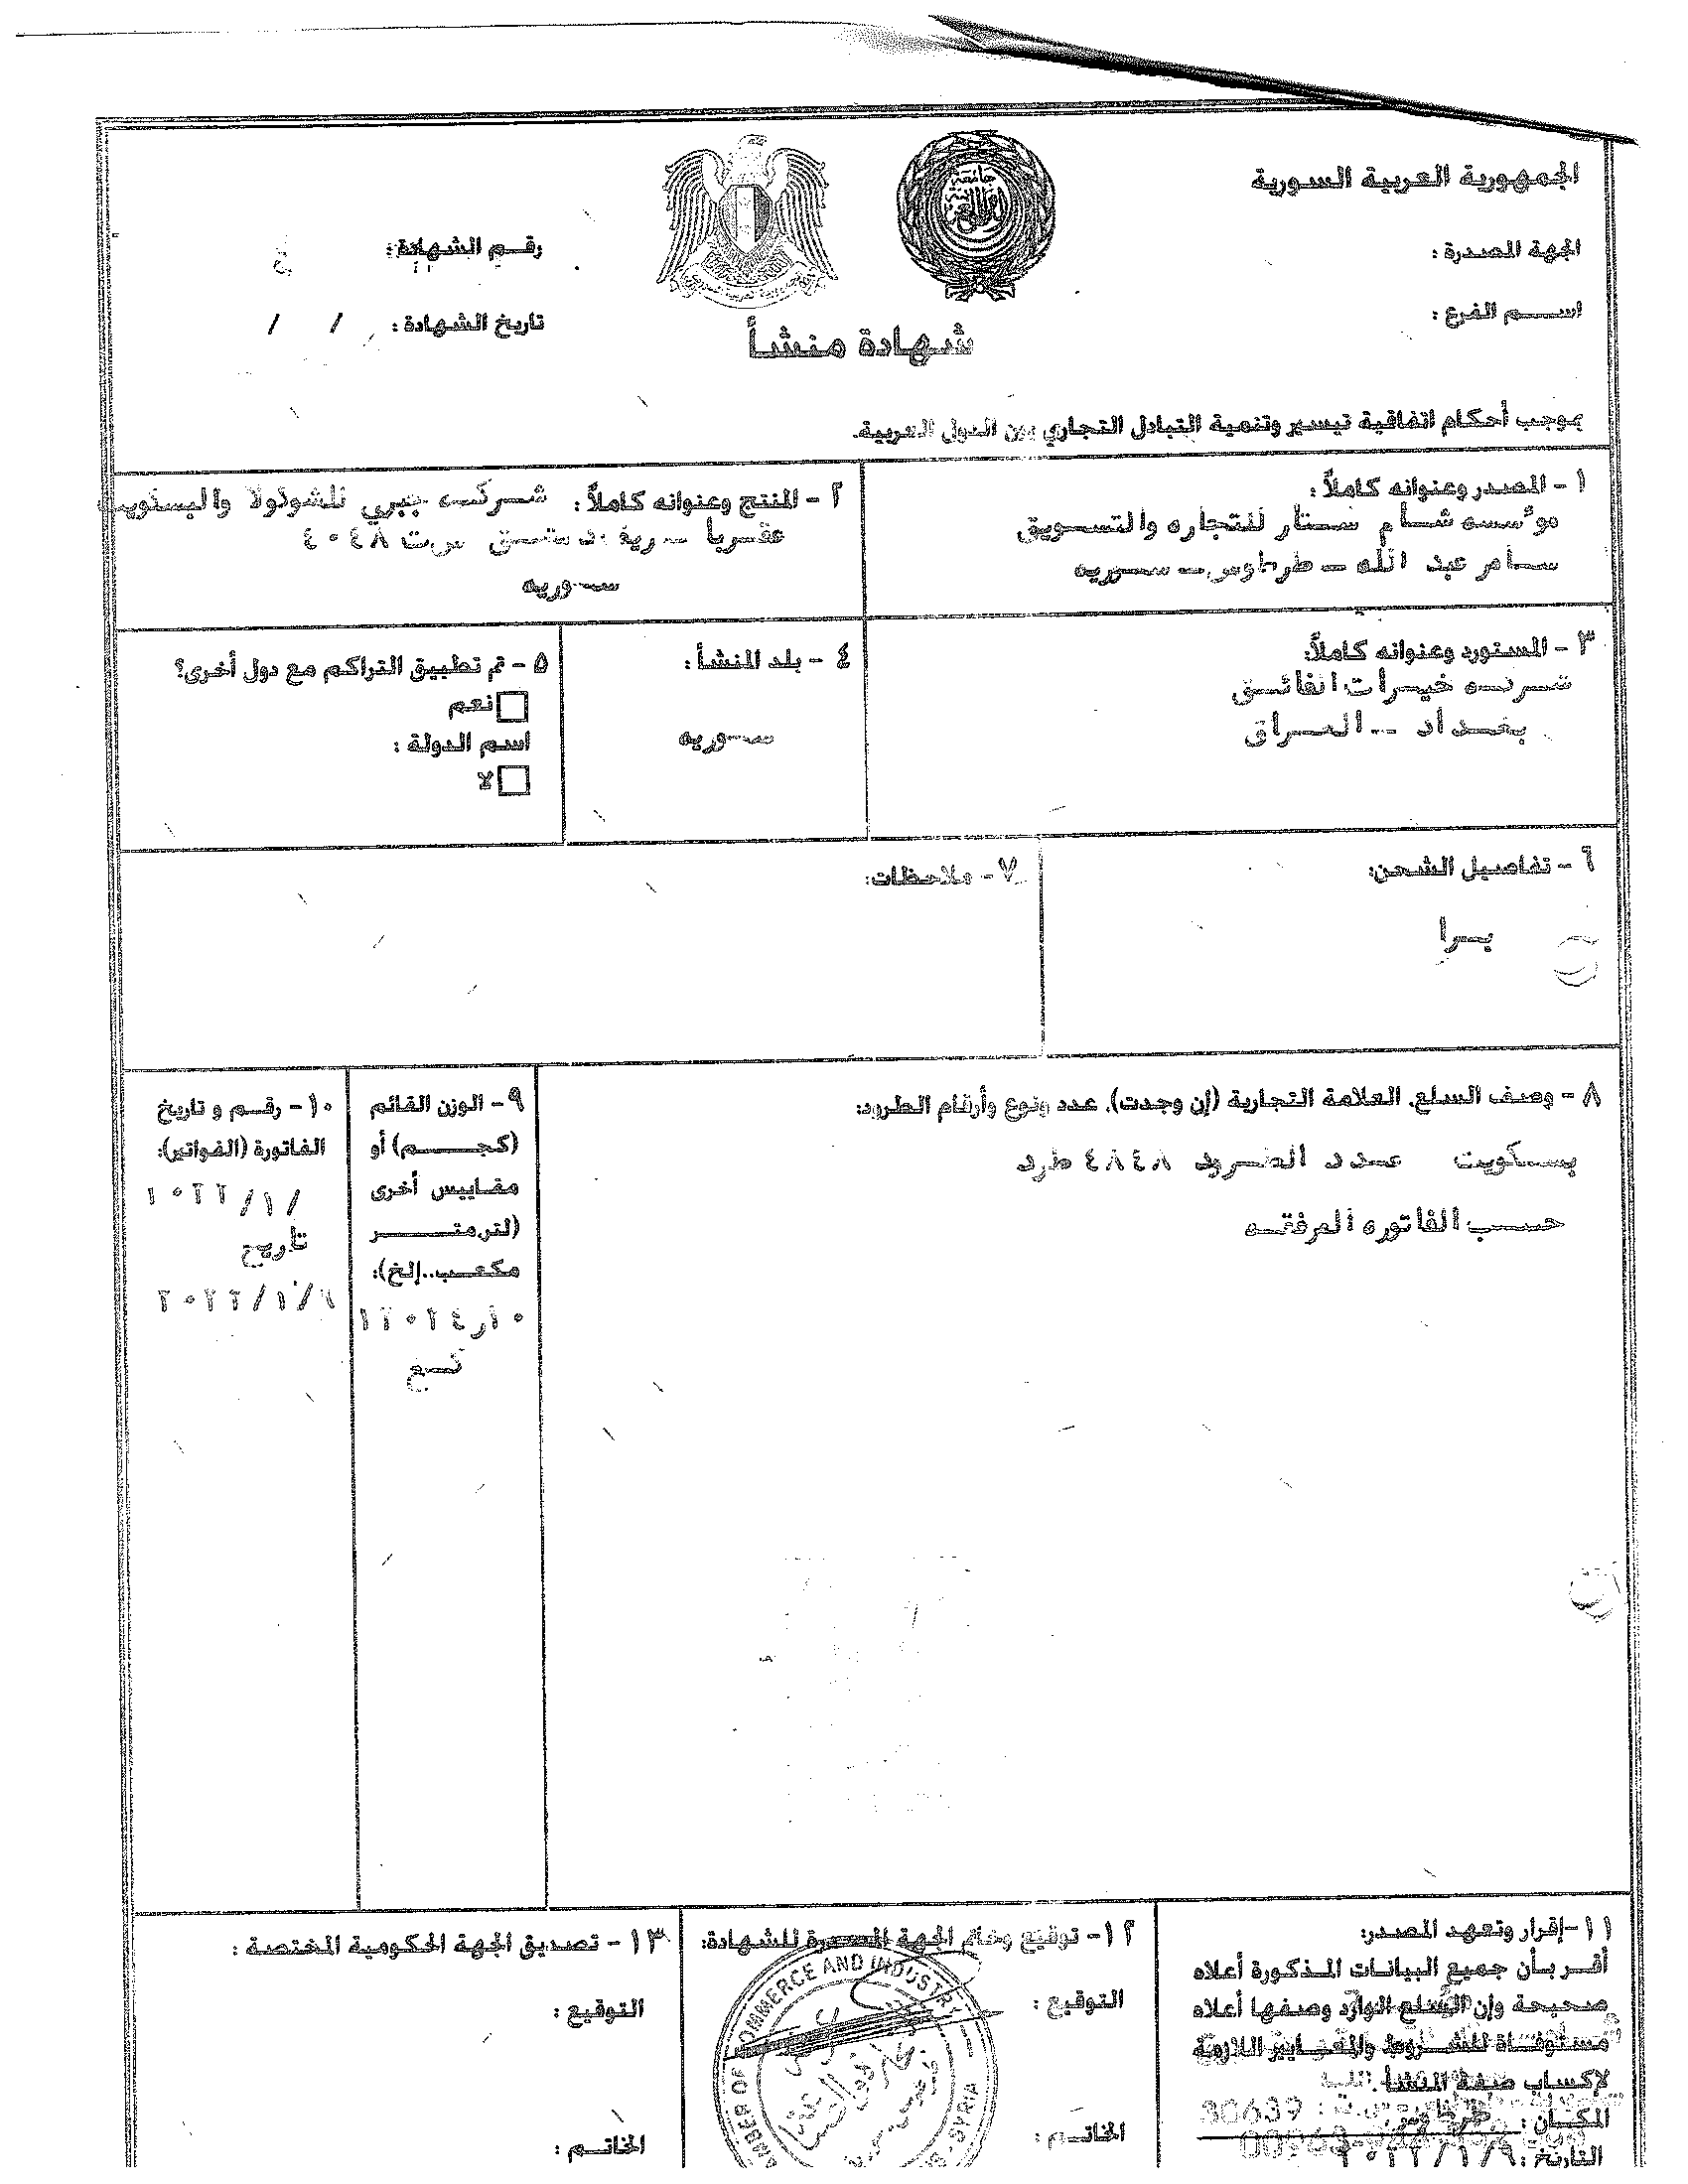 الجمهورية العربية السورية
الجهة المصدرة :
اسم الفرع :
رقم الشهادة :
تاريخ الشهادة : / /
شهادة منشأ
بموجب أحكام اتفاقية تيسير وتنمية التبادل التجاري بين الدول العربية.
١ - المصدر وعنوانه كاملاً :
موٴسسه شام ستار للتجاره والتسويق
سامر عبد الله - طرطوس - سوريه
٢ - المنتج وعنوانه كاملاً : شركه جبري للشوكولا والبسكويت
عقربا - ريف دمشق س ت ٤٠٤٨
سوريه
٣ - المستورد وعنوانه كاملاً:
شركه خيرات الفائق
بغداد -- العراق
٤ - بلد المنشأ :
سوريه
٥ - تم تطبيق التراكم مع دول أخرى؟
نعم
اسم الدولة :
لا
٦ - تفاصيل الشحن:
برا
٧ - ملاحظات:
٨ - وصف السلع. العلامة التجارية (إن وجدت). عدد ونوع وأرقام الطرود:
بسكويت عدد الطرود ٤٨٤٨ طرد
حسب الفاتوره المرفقه
٩ - الوزن القائم
(كجم) أو
مقاييس أخرى
(لتر.متر
مكعب..إلخ):
كغ
١٠ - رقم و تاريخ
الفاتورة (الفواتير):
تاريخ
١١ -إقرار وتعهد المصدر:
أقر بأن جميع البيانات المذكورة أعلاه
صحيحة وإن السلع الوارد وصفها أعلاه
مستوفاة للشروط والمعايير اللازمة
لإكساب صفة المنشأ.
المكان : طرطوس
30639
التاريخ :
١٢ - توقيع وخاتم الجهة المصدرة للشهادة:
التوقيع :
COMMERCE AND INDUSTRY
SYRIA
الخاتم :
١٣ - تصديق الجهة الحكومية المختصة :
التوقيع :
الخاتم :